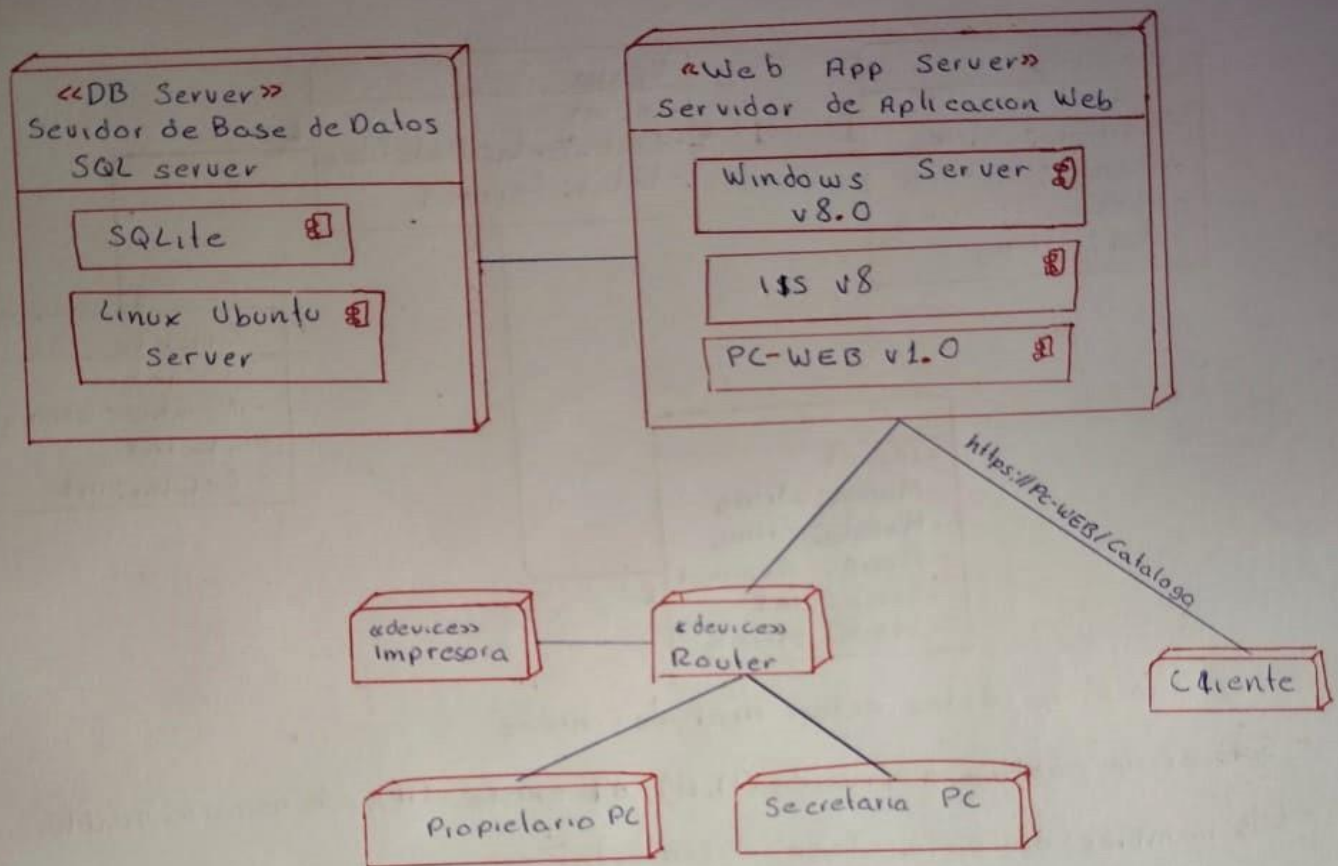 ««DB Server»»
Sevidor de Base de Datos
SQL server
SQLite
Linux Ubuntu
Server
«Web App Server»
Servidor de Aplicacion Web
Windows Server
v8.0
IIS v8
PC-WEB v1.0
https://PC-WEB/Catalogo
«device»
Impresora
«device»
Router
Cliente
Propietario PC
Secretaria PC